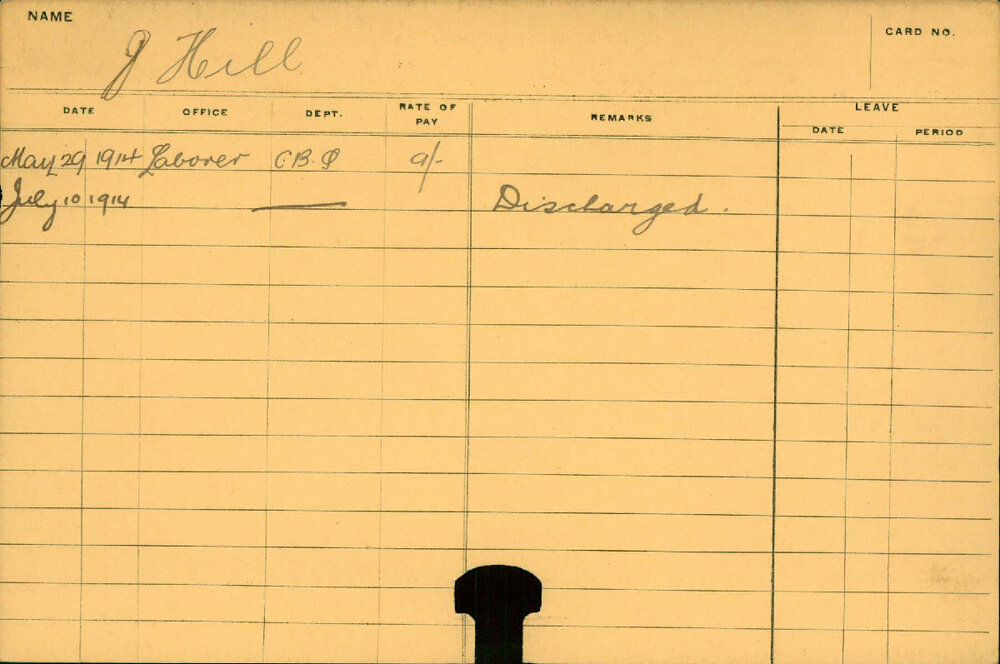 NAME
J Hill
CARD NO.
DATE OFFICE DEPT. RATE OF PAY REMARKS LEAVE
DATE PERIOD
May 29 1914 Laborer 9/-
July 10 1914 — Discharged.